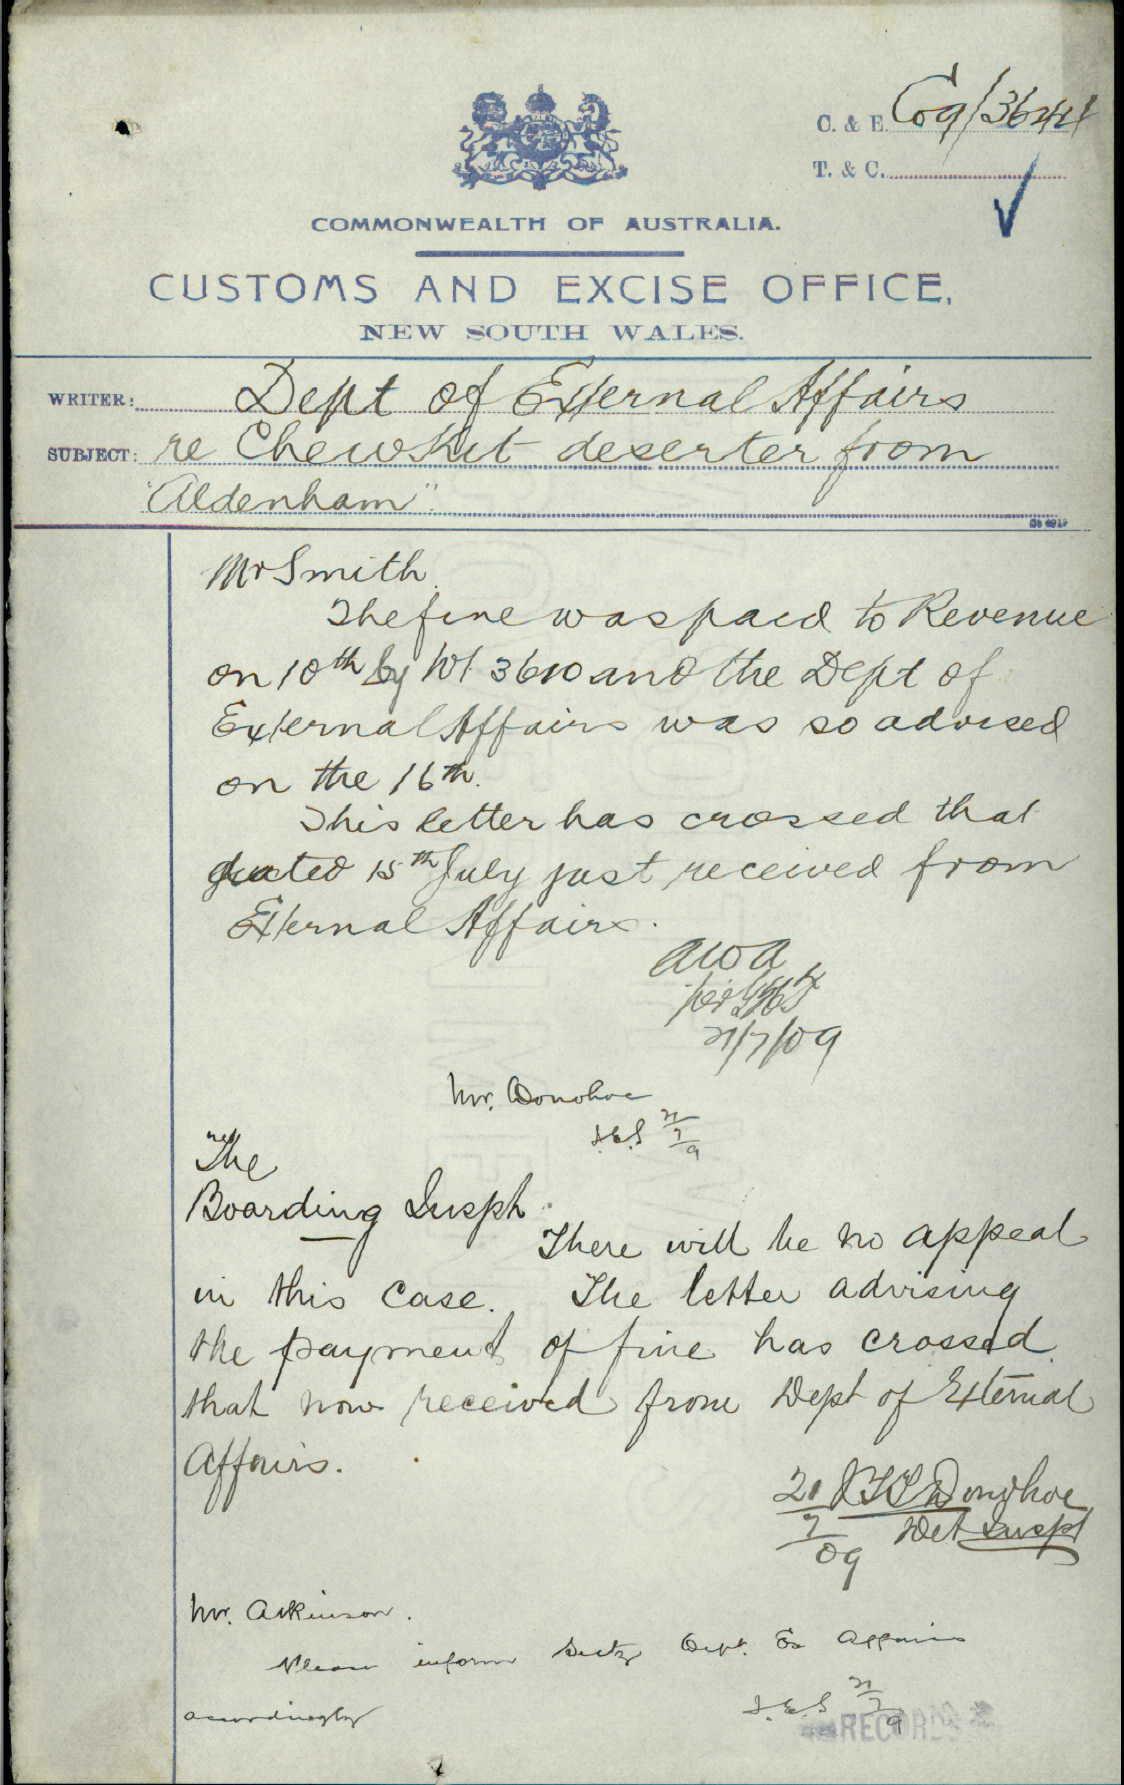 C. & E. C09/3644
T. & C.
COMMONWEALTH OF AUSTRALIA.
CUSTOMS AND EXCISE OFFICE,
NEW SOUTH WALES.
WRITER: Dept of External Affairs
SUBJECT: re Chew Kit deserter from
"Aldenham"
Mr Smith.
The fine was paid to Revenue
on 10th by Wt 3610 and the Dept of
External Affairs was so advised
on the 16th.
This letter has crossed that
dated 15th July just received from
External Affairs.
AWA
per
21/7/09
Mr. Donohoe
J.E.S 21/7/9
The
Boarding Inspr.
There will be no appeal
in this case. The letter advising
the payment of fine has crossed
that now received from Dept of External
Affairs.
21/7/09 Donohoe
Det Inspr
Mr. Atkinson.
Please inform Secty Dept. Ex Affairs
accordingly
J.E.S 21/7/9
RECORDS